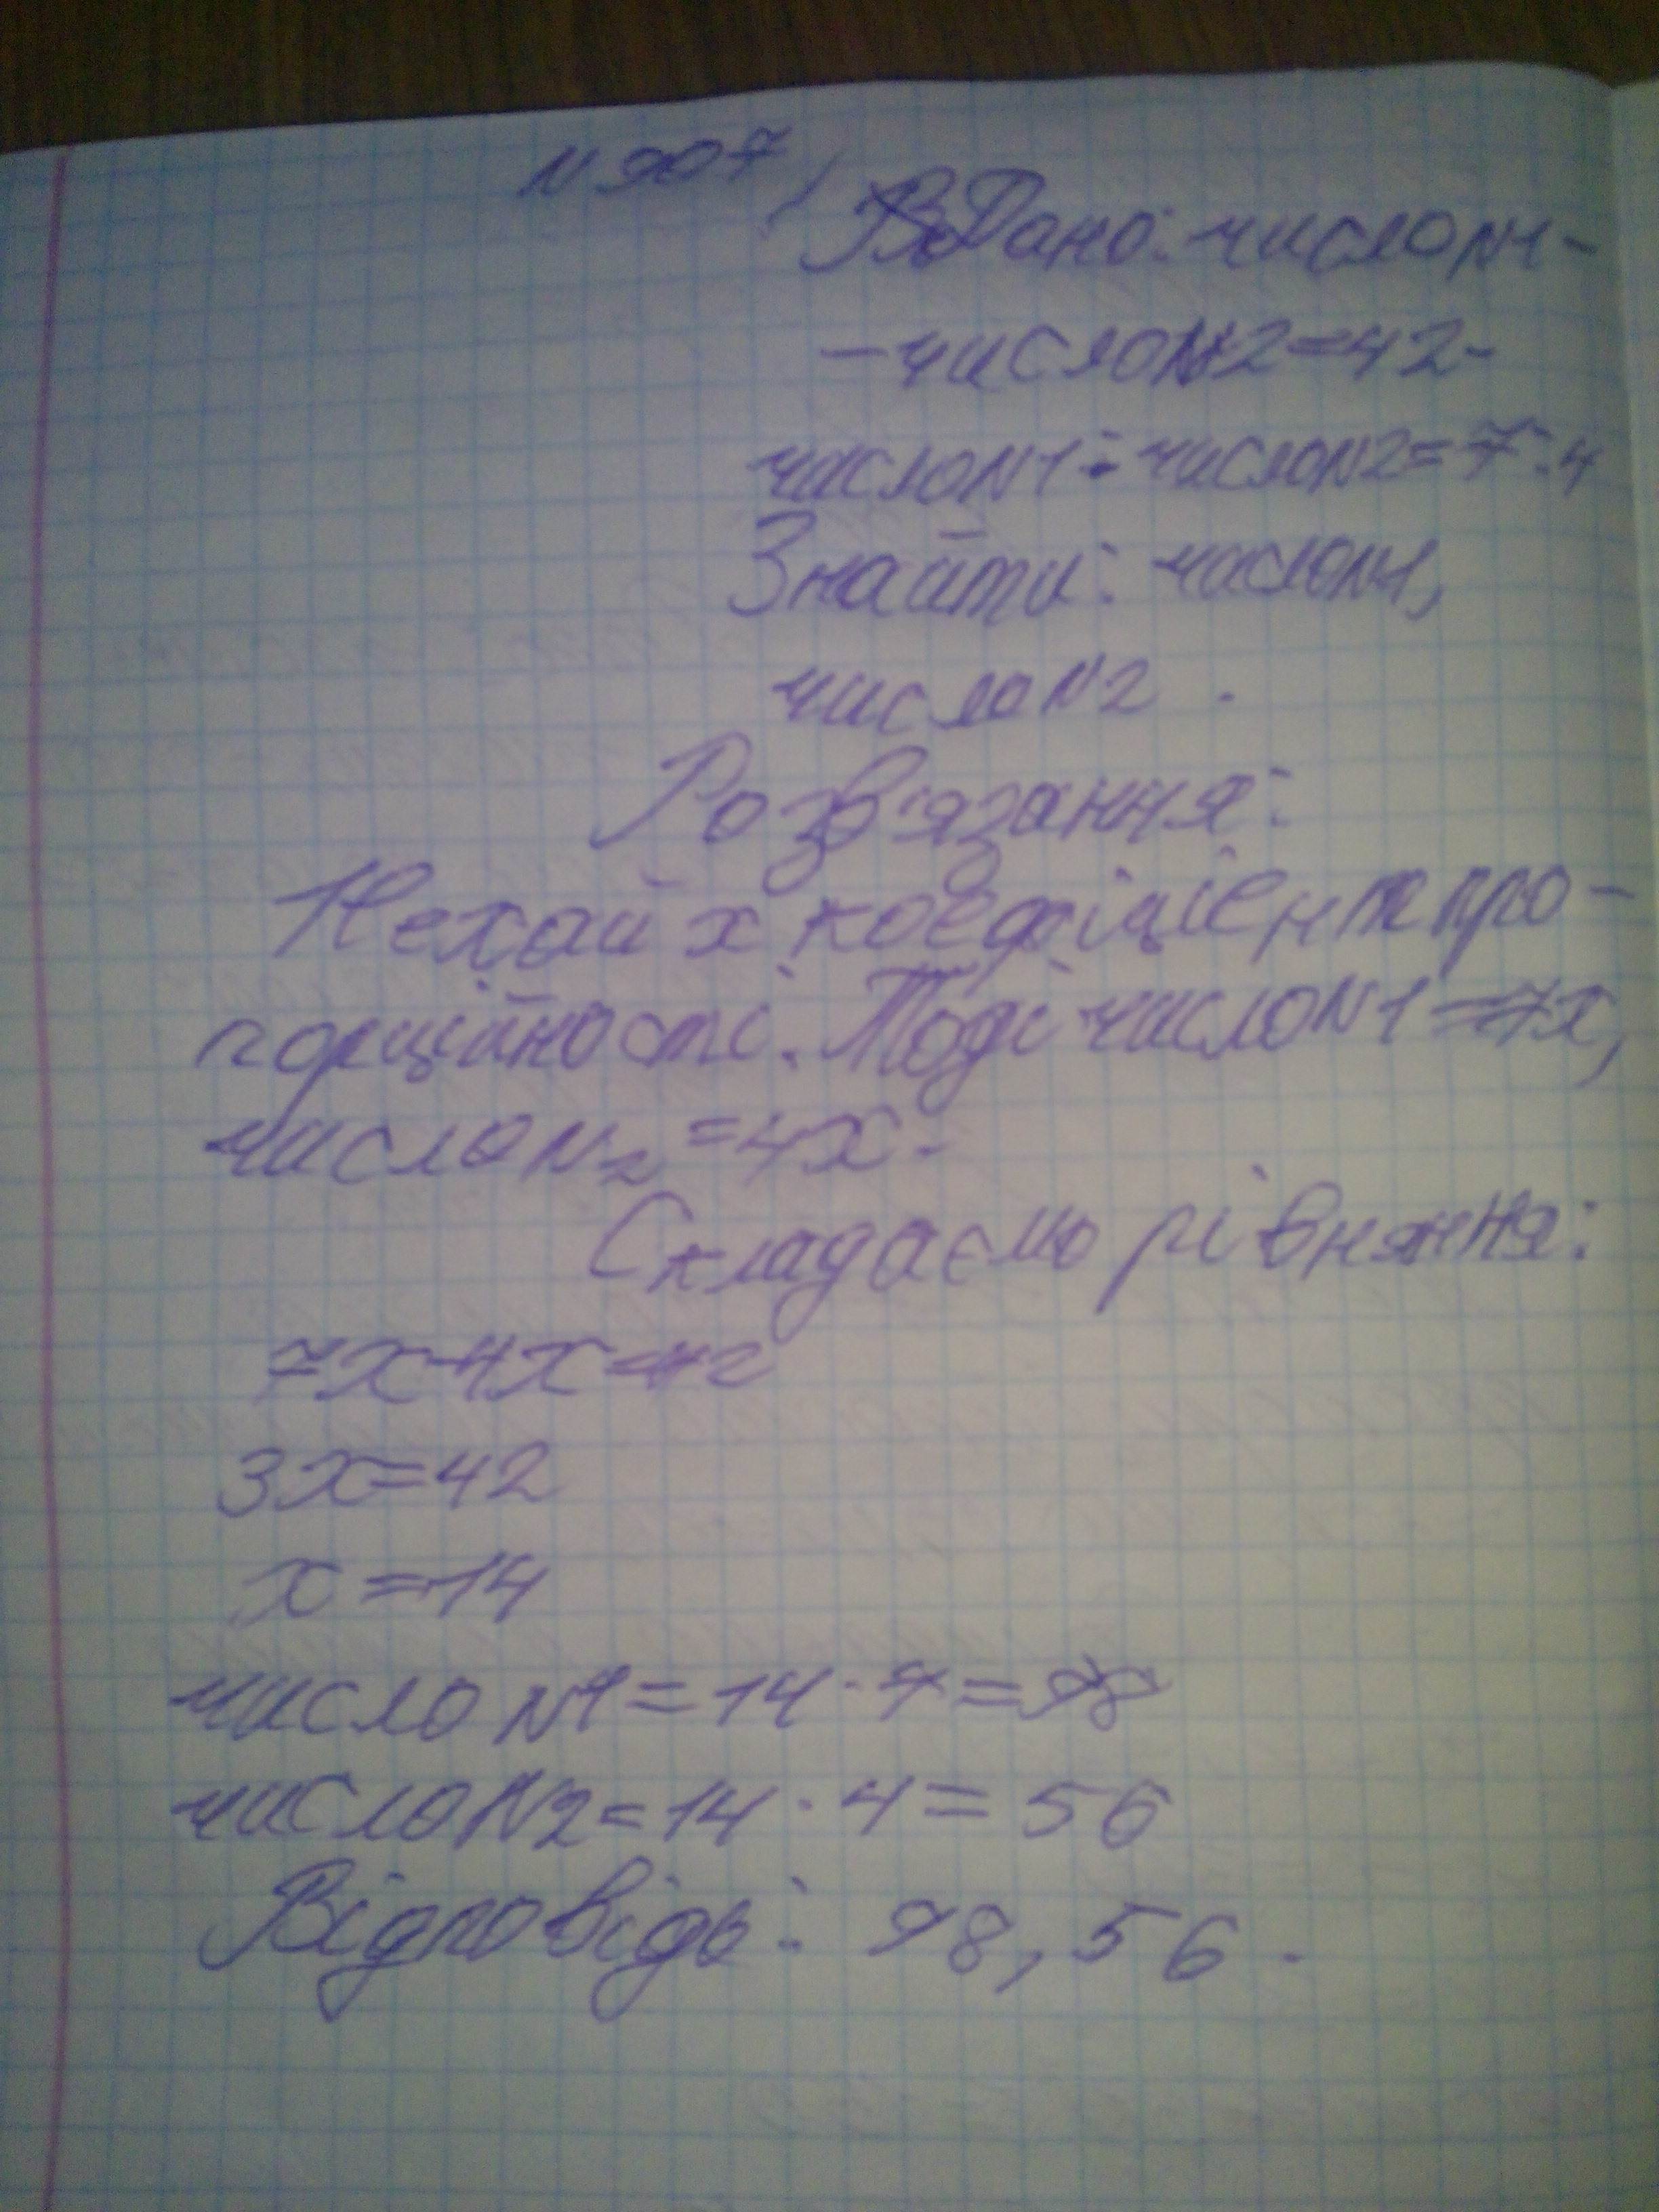 N 907
Дано: число N1 -
- число N2 = 42.
число N1 : число N2 = 7:4
Знайти: число N1,
число N2.
Розв'язання:
Нехай х коефіцієнт про-
порційності. Тоді число N1 = 7х,
число N2 = 4х.
Складаємо рівняння:
7х-4х=42
3х=42
х=14
число N1 = 14·7=98
число N2 = 14·4=56
Відповідь: 98, 56.